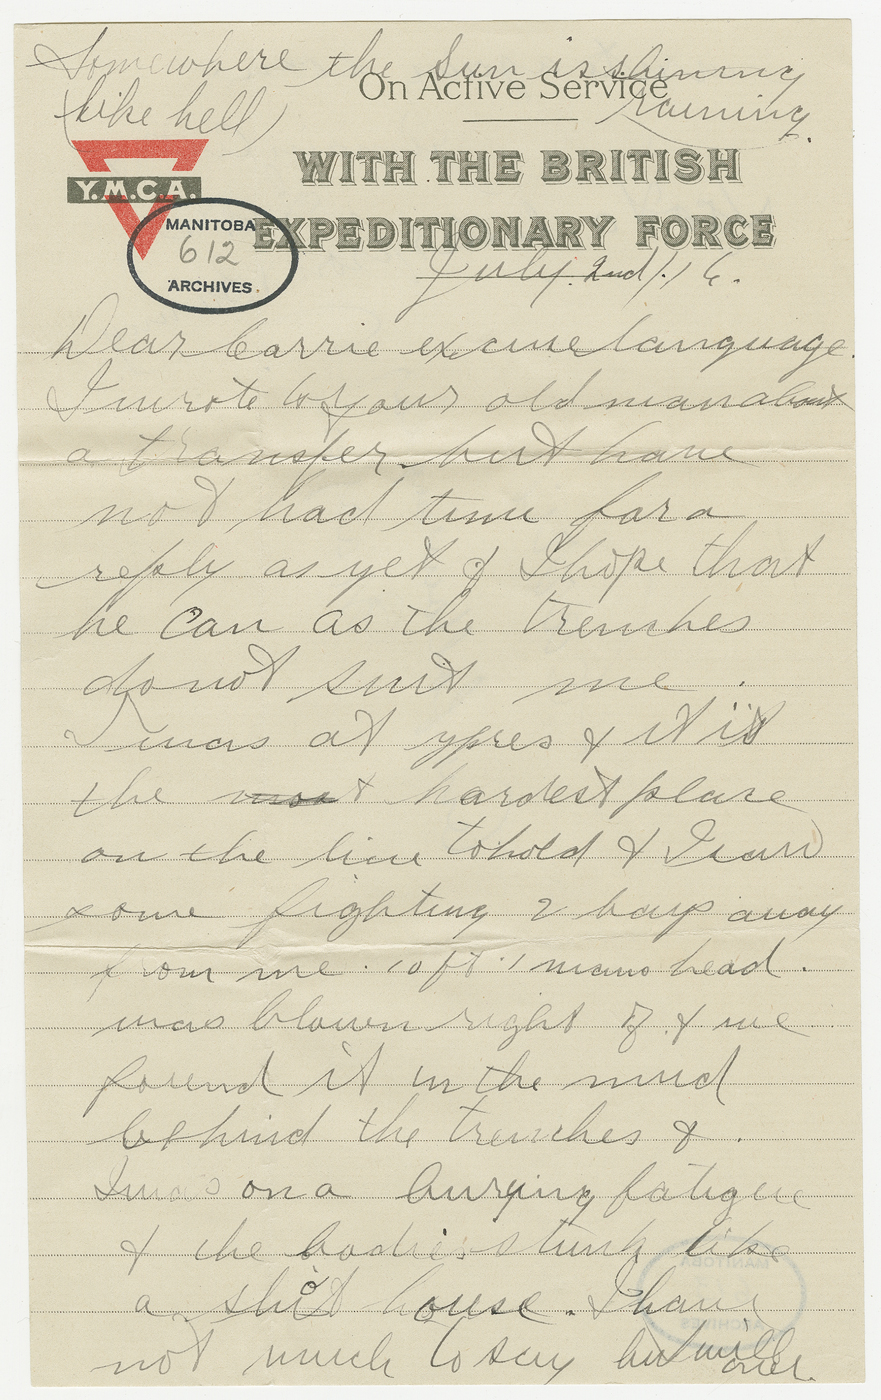 Somewhere the Sun is shining
(like hell) raining.
On Active Service
WITH THE BRITISH
Y.M.C.A.
EXPEDITIONARY FORCE
MANITOBA
612
ARCHIVES
July. 2nd/.16.
Dear Carrie excuse language.
I wrote to your old man about
a transfer. but have
not had time for a
reply as yet & I hope that
he can as the trenches
do not suit me.
I was at ypres & it is
the most hardest place
on the line to hold & I saw
some fighting 2 boys away
from me. 10 ft. 1 mans head.
was blown right of. & we
found it in the mud
behind the trenches &.
I was on a burying fatigue
& the bodies stunk like
a shit house. I have
not much to say but will
over.